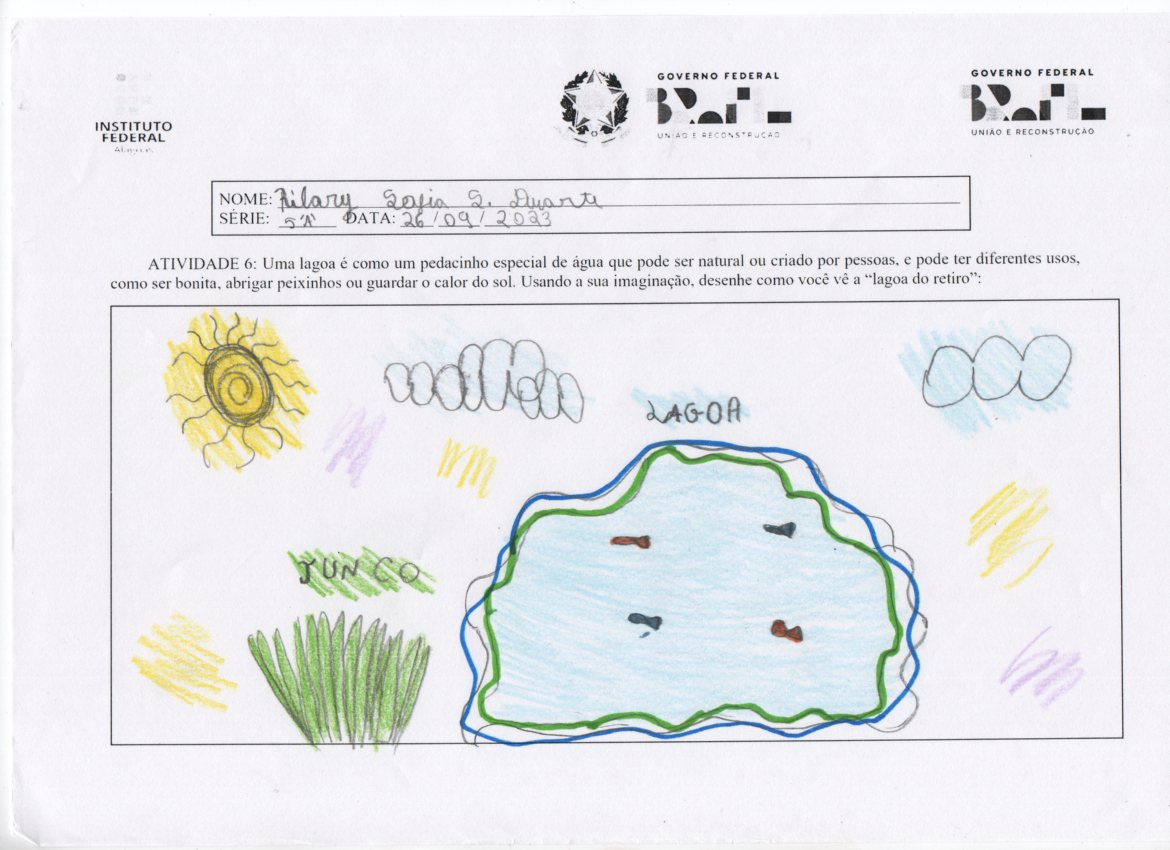 INSTITUTO
FEDERAL
Alagoas
GOVERNO FEDERAL
BRASIL
UNIÃO E RECONSTRUÇÃO
GOVERNO FEDERAL
BRASIL
UNIÃO E RECONSTRUÇÃO
NOME: Hilary Sofia S. Duarte
SÉRIE: 5"A" DATA: 26/09/2023
ATIVIDADE 6: Uma lagoa é como um pedacinho especial de água que pode ser natural ou criado por pessoas, e pode ter diferentes usos,
como ser bonita, abrigar peixinhos ou guardar o calor do sol. Usando a sua imaginação, desenhe como você vê a “lagoa do retiro”:
LAGOA
JUNCO